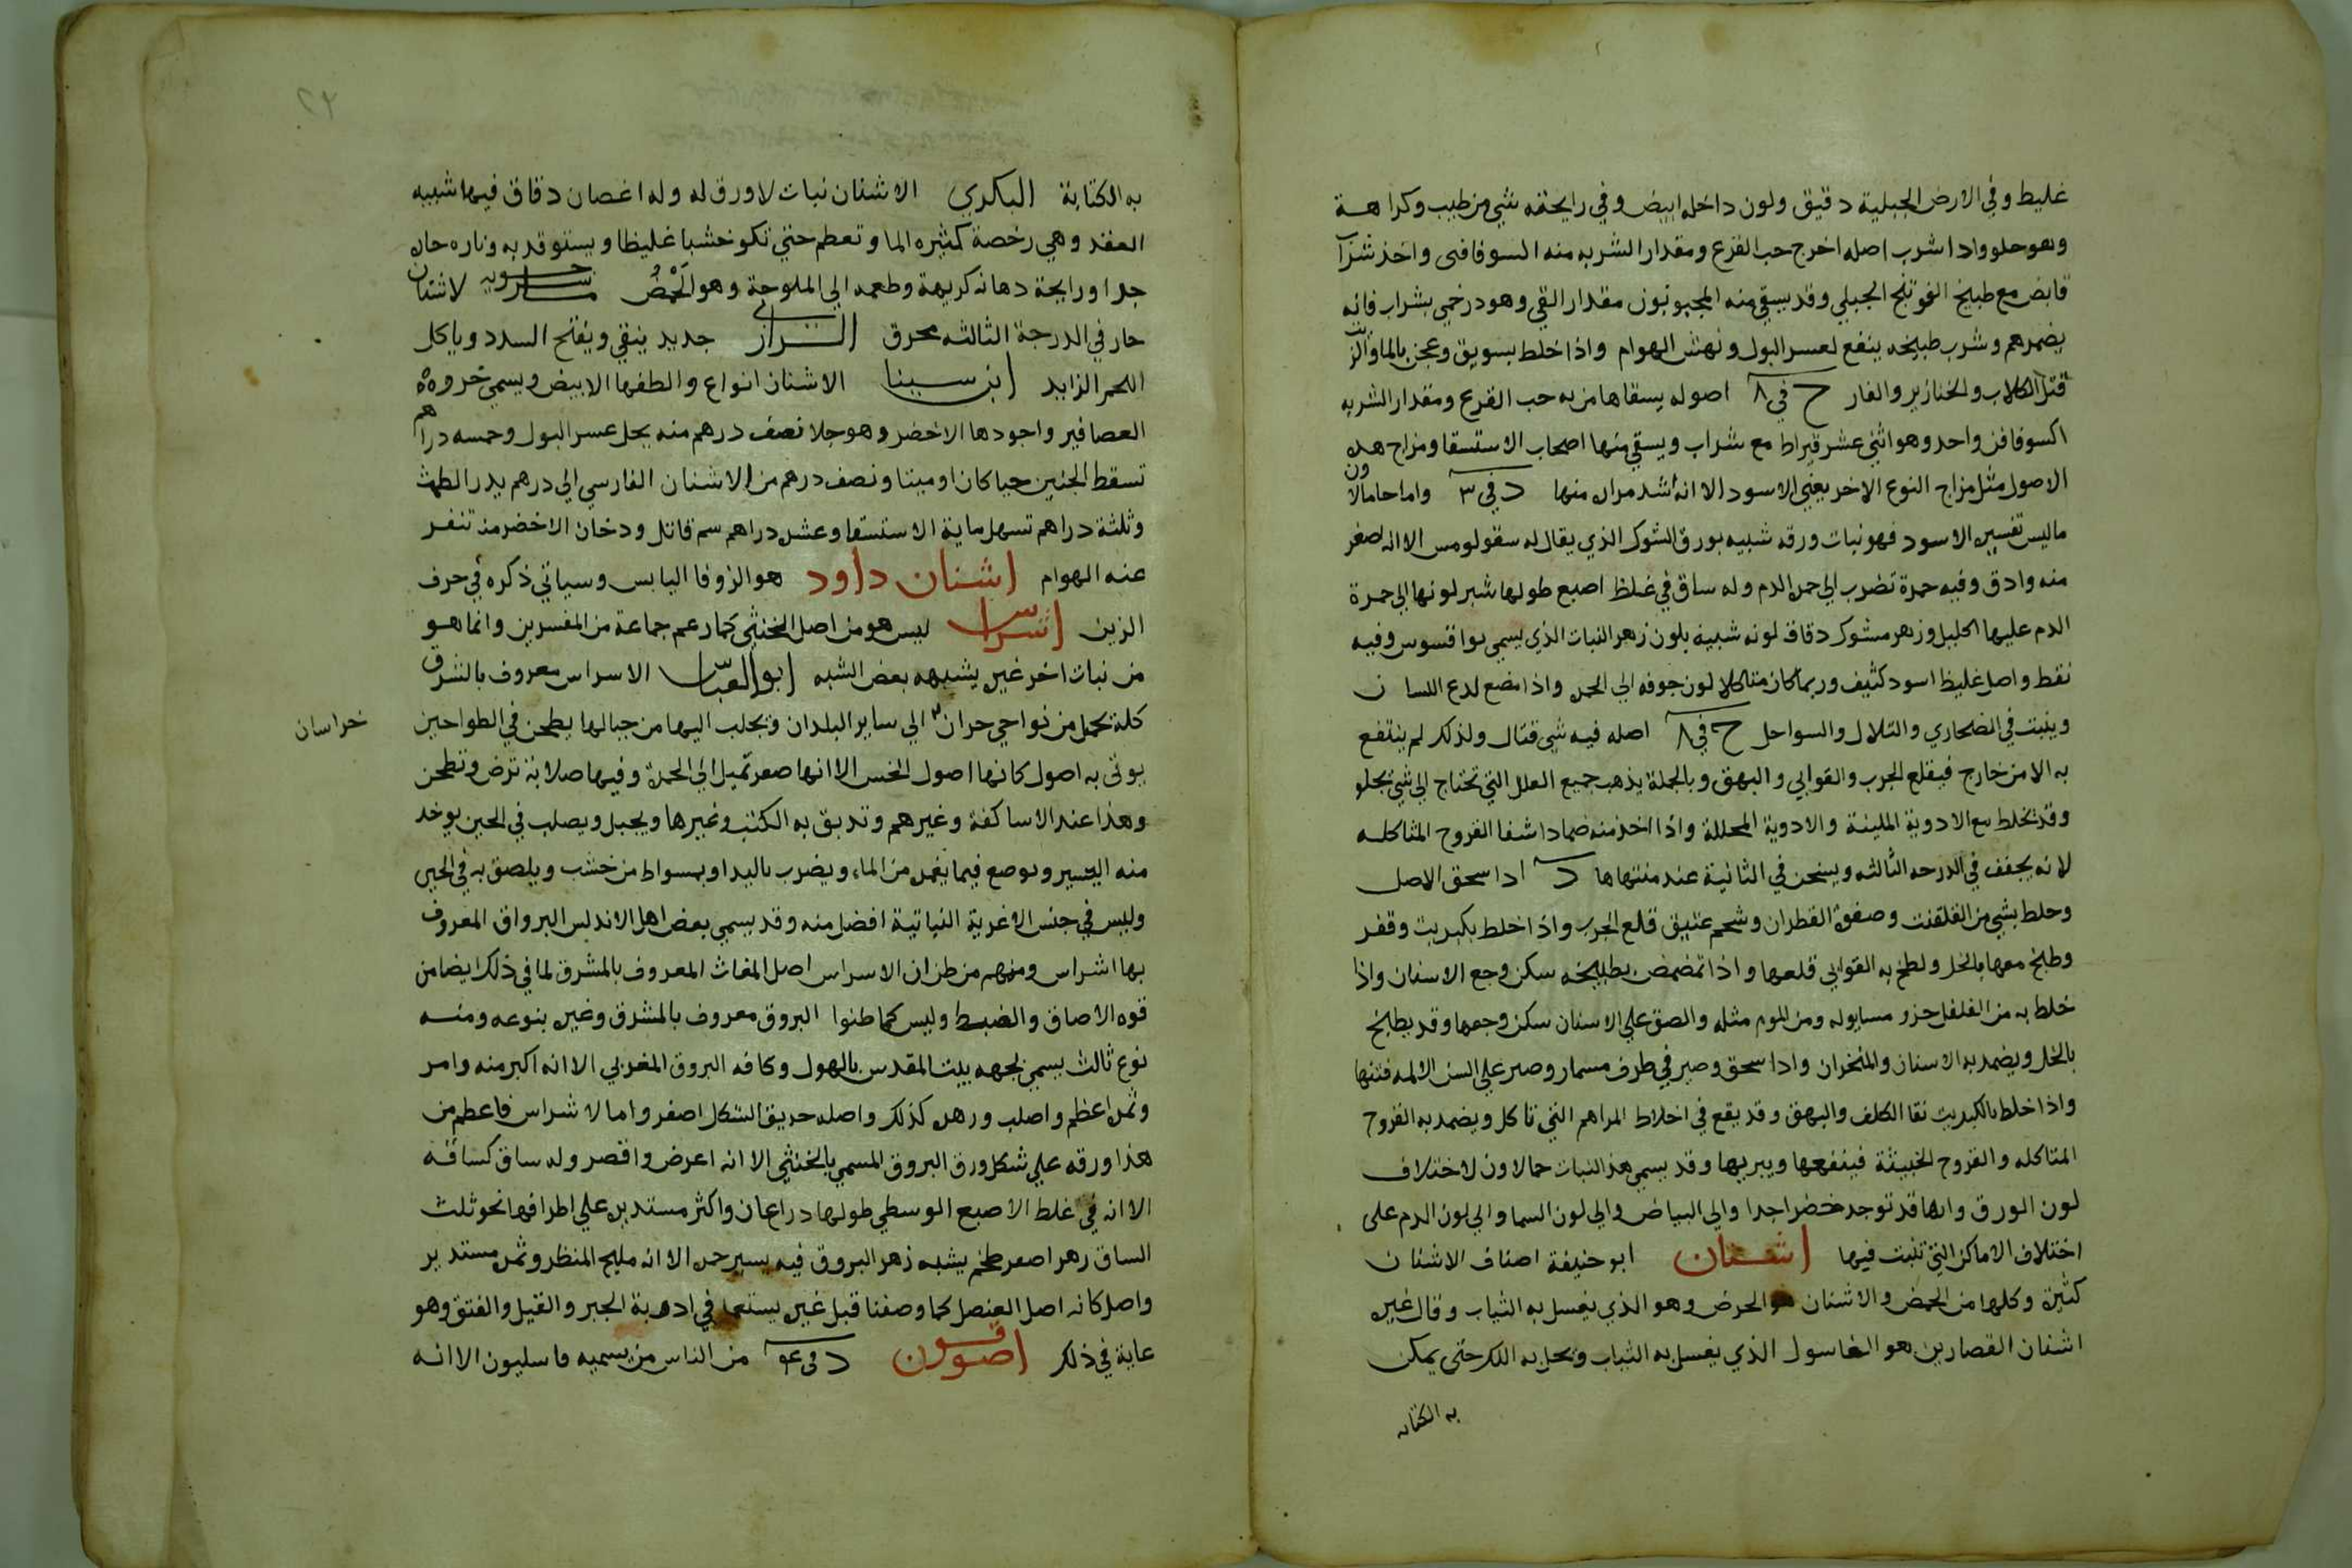 غليط وفي الارض الجبلية دقيق ولون داخله ابيض وفي رايحته شي من طيب وكراهة
وهو حلو واذا شرب اصله اخرج حب القرع ومقدار الشربه منه اكسوفافن واخذ شراب
قابض مع طبيخ الفوتنج الجبلي وقد يسقي منه المجبونون مقدار القي وهو درخمي بشراب فانه
يضمرهم وشرب طبيخه ينفع لعسر البول ونهش الهوام واذا خلط بسويق وعجن بالما والزيت
قتل الكلاب والخنازير والفار ح في ٨ اصوله يسقاها من به حب القرع ومقدار الشربه
اكسوفافن واحد وهو اثني عشر قيراط مع شراب ويسقي منها اصحاب الاستسقا ومزاج هذه
الاصول مثل مزاج النوع الاخر يعني الاسود الا انه اشد مراره منها د في ٣ واما حامالاون
ماليس تفسيره الاسود فهو نبات ورقه شبيه بورق الشوك الذي يقال له سقولومس الا انه اصغر
منه وادق وفيه حمرة تضرب الي حمرة الدم وله ساق في غلظ اصبع طولها شبر لونها الي حمرة
الدم عليها اكليل وزهر مشوك دقاق لونه شبيه بلون زهر النبات الذي يسمي بواقسوس وفيه
نقط واصل غليظ اسود كثيف وربما كان متاكلا لون جوفه الي الحمره واذا مضع لدع اللسان
وينبت في الصحاري والتلال والسواحل ح في ٨ اصله فيه شي قتال ولذلك لم ينتفع
به الا من خارج فيقلع الجرب والقوابي والبهق وبالجملة يذهب جميع العلل التي تحتاج الي شي يجلو
وقد تخلط مع الادوية الملينة والادوية المحللة واذا اخذ منه ضمادا شفا القروح المتاكله
لانه يجفف في الدرحه الثالثه ويسخن في الثانية عند منتهاها د ادا سحق الاصل
وخلط بشي من القلقنت وصفوة القطران وشحم عتيق قلع الجرب واذا خلط بكبريت وقفر
وطبخ معها بالخل ولطخ به القوابي قلعها واذا تمضمض بطبيخه سكن وجع الاسنان واذا
خلط به من الفلفل جزو مساويه له ومن الموم مثله والصق علي الاسنان سكن وجعها وقد يطبخ
بالخل ويضمد به الاسنان والمنخران وادا سحق وصير في طرف مسمار وصير علي السن الالمه فتتها
واذا خلط بالكبريت نقا الكلف والبهق وقد يقع في اخلاط المراهم التي تاكل ويضمد به القروح
المتاكله والقروح الخبيثة فينفعها ويبريها وقد يسمي هذا النبات حمالاون لاختلاف
لون الورق وانها قد توجد خضرا جدا والي البياض والي لون السما والي لون الدم على
اختلاف الاماكن التي تنبت فيها اشنان ابو حنيفة اصناف الاشنان
كثيرة وكلها من الحمض والاشنان هو الحرض وهو الذي يغسل به الثياب وقال غيره
اشنان القصارين هو الغاسول الذي يغسل به الثياب ويحل به اللك حتى يمكن
به الكتابه
به الكتابة البكري الاشنان نبات لا ورق له وله اغصان دقاق فيها شبيه
العقد وهي رخصة كثيره الما وتعظم حتي تكو خشبا غليظا ويستوقد به وناره حاره
جدا ورايحة دخانه كريهة وطعمه الي الملوحة وهو الحَمْضُ ماسرحويه الاشنان
حار في الدرجة الثالثه محرق الرازي جديد ينقي ويفتح السدد وياكل
اللحم الزايد ابن سينا الاشنان انواع والطفها الابيض ويسمي خروه
العصافير واجودها الاخضر وهو جلا نصف درهم منه يحل عسر البول وخمسه دراهم
تسقط الجنين حيا كان او ميتا ونصف درهم من الاشنان الفارسي الي درهم يدر الطمث
وثلثة دراهم تسهل ماية الاستسقا وعشرة دراهم سم قاتل ودخان الاخضر منه تنفر
عنه الهوام اشنان داود هو الزوفا اليابس وسياتي ذكره في حرف
الزين اشراس ليس هو من اصل الخنثي كما زعم جماعة من المفسرين وانما هو
من نبات اخر غير يشبهه بعض الشبه ابو العباس الاسراس معروف بالشرق
كله تحمل من نواحي حران الي ساير البلدان ويجلب اليها من جبالها يطحن في الطواحين
خراسان
يوتى به اصول كانها اصول الخس الا انها صعر تميل الي الحمرة وفيها صلابة ترض وتطحن
وهذا عند الاساكفة وغيرهم وتدبق به الكتب وغيرها ويجبل ويصلب في الحين يوخد
منه اليسير ويوضع فيما يغمره من الماء ويضرب باليد او بسواط من خشب ويلصق به في الحين
وليس في جنس الاغرية النباتية افضل منه وقد يسمي بعض اهل الاندلس البرواق المعروف
بها اشراس ومنهم من ظن ان الاسراس اصل المغاث المعروف بالمشرق لما في ذلك ايضا من
قوه الاصاق والضبط وليس كما ظنوا البروق معروف بالمشرق وغيره بنوعه ومنه
نوع ثالث يسمي بجهه بيت المقدس بالهول وكافه البروق المغربي الا انه اكبر منه وامر
وثمره اعظم واصلب وزهره كذلك واصله حريق الشكل اصفر واما الاشراس فاعظم من
هذا ورقه علي شكل ورق البروق المسمي بالخنثي الا انه اعرض واقصر وله ساق كساقه
الا انه في غلط الاصبع الوسطي طولها دراعان واكثر مستديره علي اطرافها نحو ثلث
الساق زهر اصفر ضخم يشبه زهر البروق فيه يسير حمره الا انه مليح المنظر وثمره مستدير
واصل كانه اصل العنصل كما وصفنا قبل غيره يستعمل في ادوية الجبر والقيل والفتق وهو
غاية في ذلك اصوقون د في ٤ من الناس من يسميه فاسليون الا انه